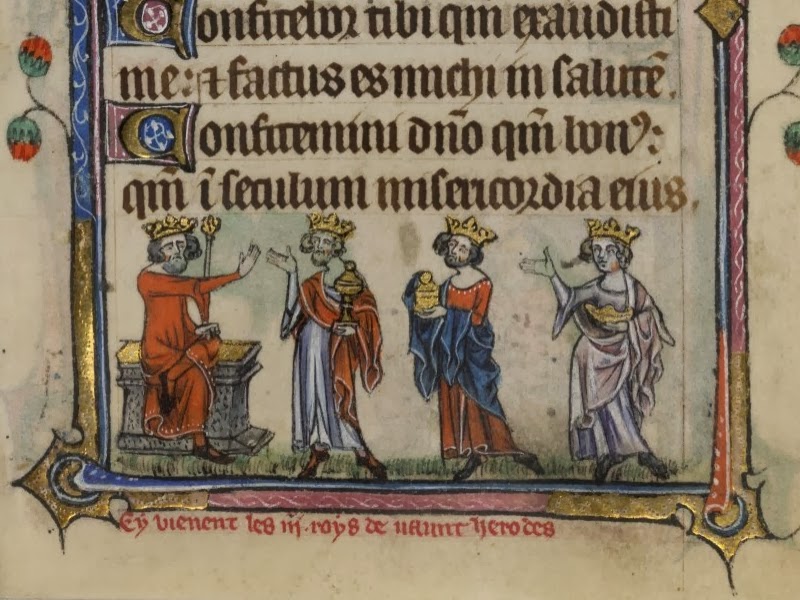 Confitebor tibi qm̄ exaudisti
me: ⁊ factus es michi in salutē.
Confitemini dn̄o qm̄ bonꝰ:
qm̄ ī seculum misericordia eius.
Cy vienent les iij. roys de uaunt herodes